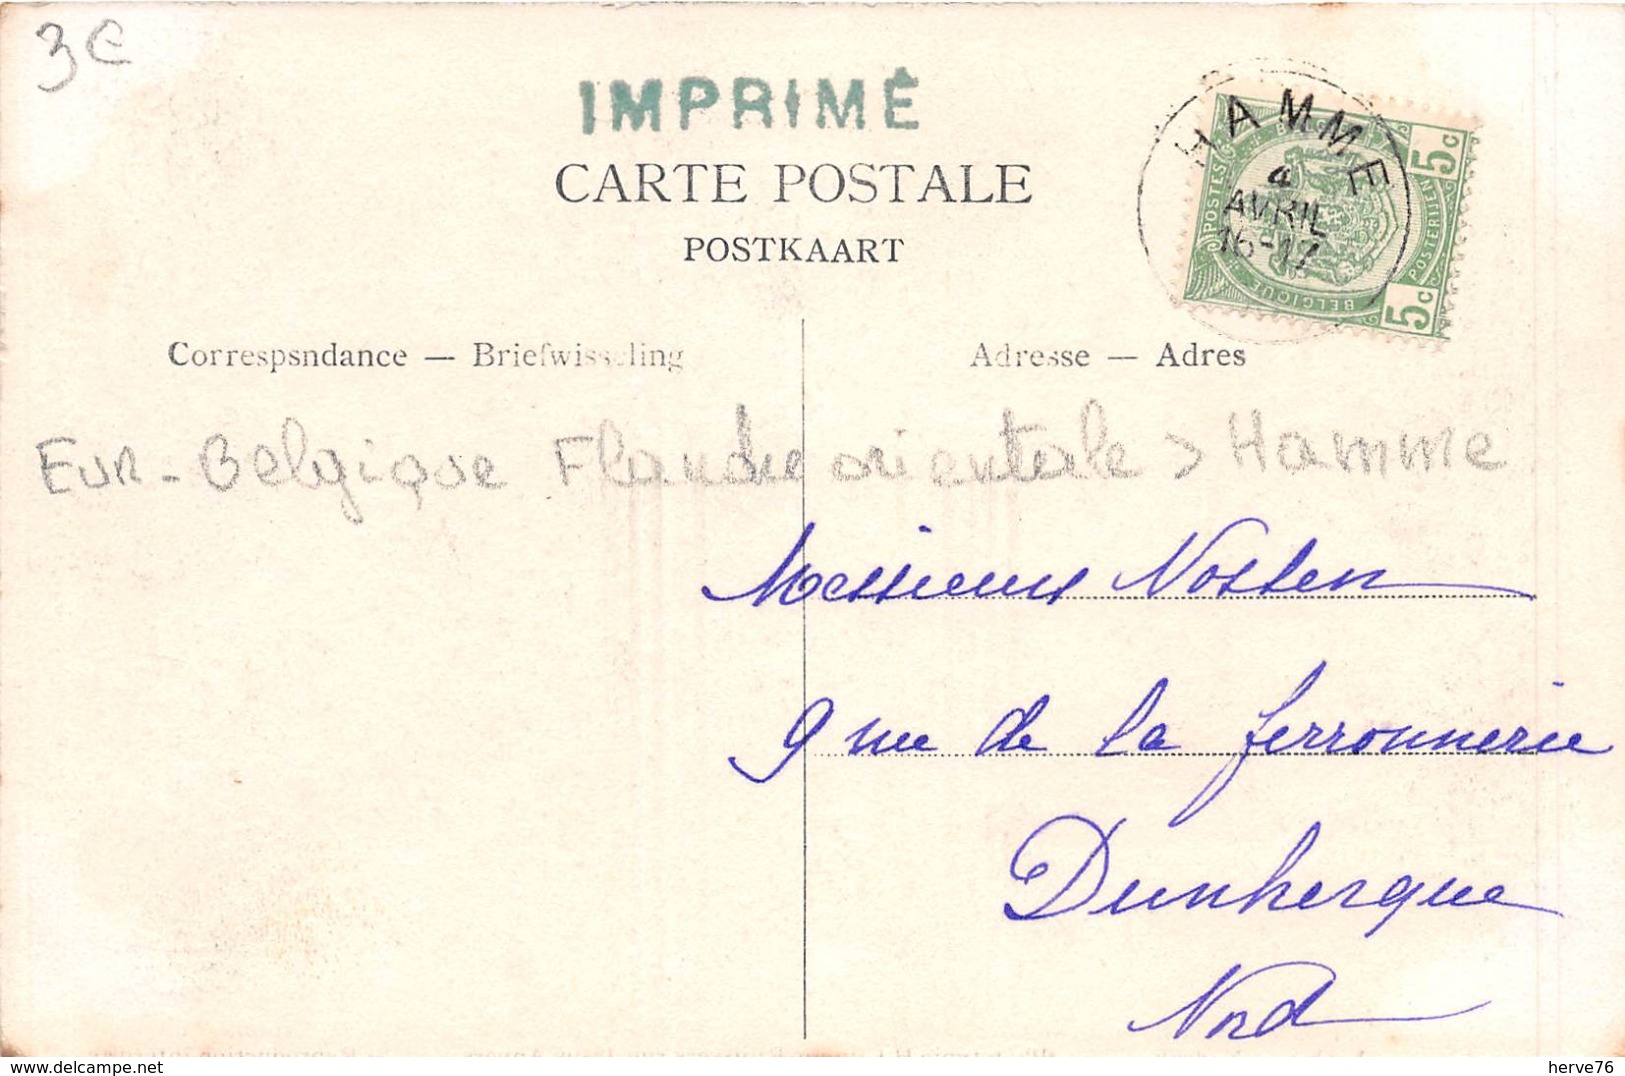 3€
IMPRIMÉ
CARTE POSTALE
POSTKAART
HAMME
4
AVRIL
16-17
POSTES POSTERIJEN
BELGIQUE
5c
5c
Correspsndance — Briefwisseling
Adresse — Adres
Eur-Belgique Flandre orientale > Hamme
Messieurs Nosten
9 rue de la ferronnerie
Dunkerque
Nord
delcampe.net
herve76